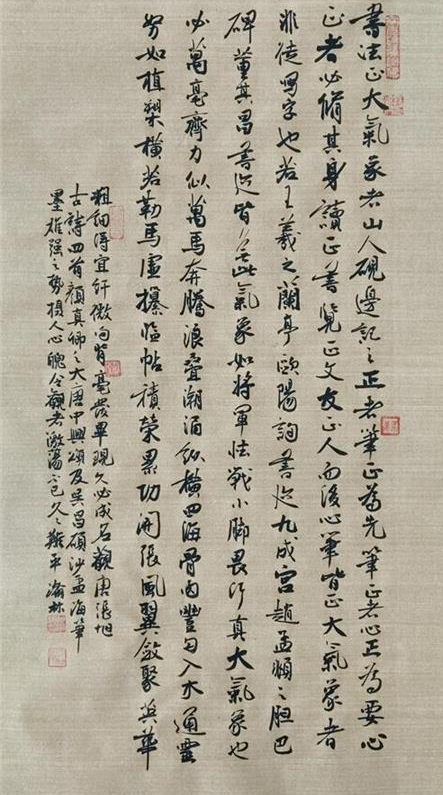 書法正大氣象老山人硯邊記之正者筆正為先筆正者心正為要心
正者必脩其身讀正書覽正文友正人而後心筆皆正大氣象者
非徒寫字也若王羲之蘭亭歐陽詢書跡九成宮趙孟頫之胆巴
碑董其昌書跡皆具此氣象如將軍怯戰小腳畏行真大氣象也
必萬毫齊力似萬馬奔騰浪疊潮涌縱橫四海骨肉豐勻入木通靈
努如植槊橫若勒馬虛臨帖積累功開張風翼斂聚英華
粗細得宜纤微向背毫髮畢現久必成名觀唐張旭
古詩四首顏真卿之大唐中興頌及吳昌碩沙孟海筆
墨雄强之勢摄人心魄令觀者激蕩不已久久難平 瀚林